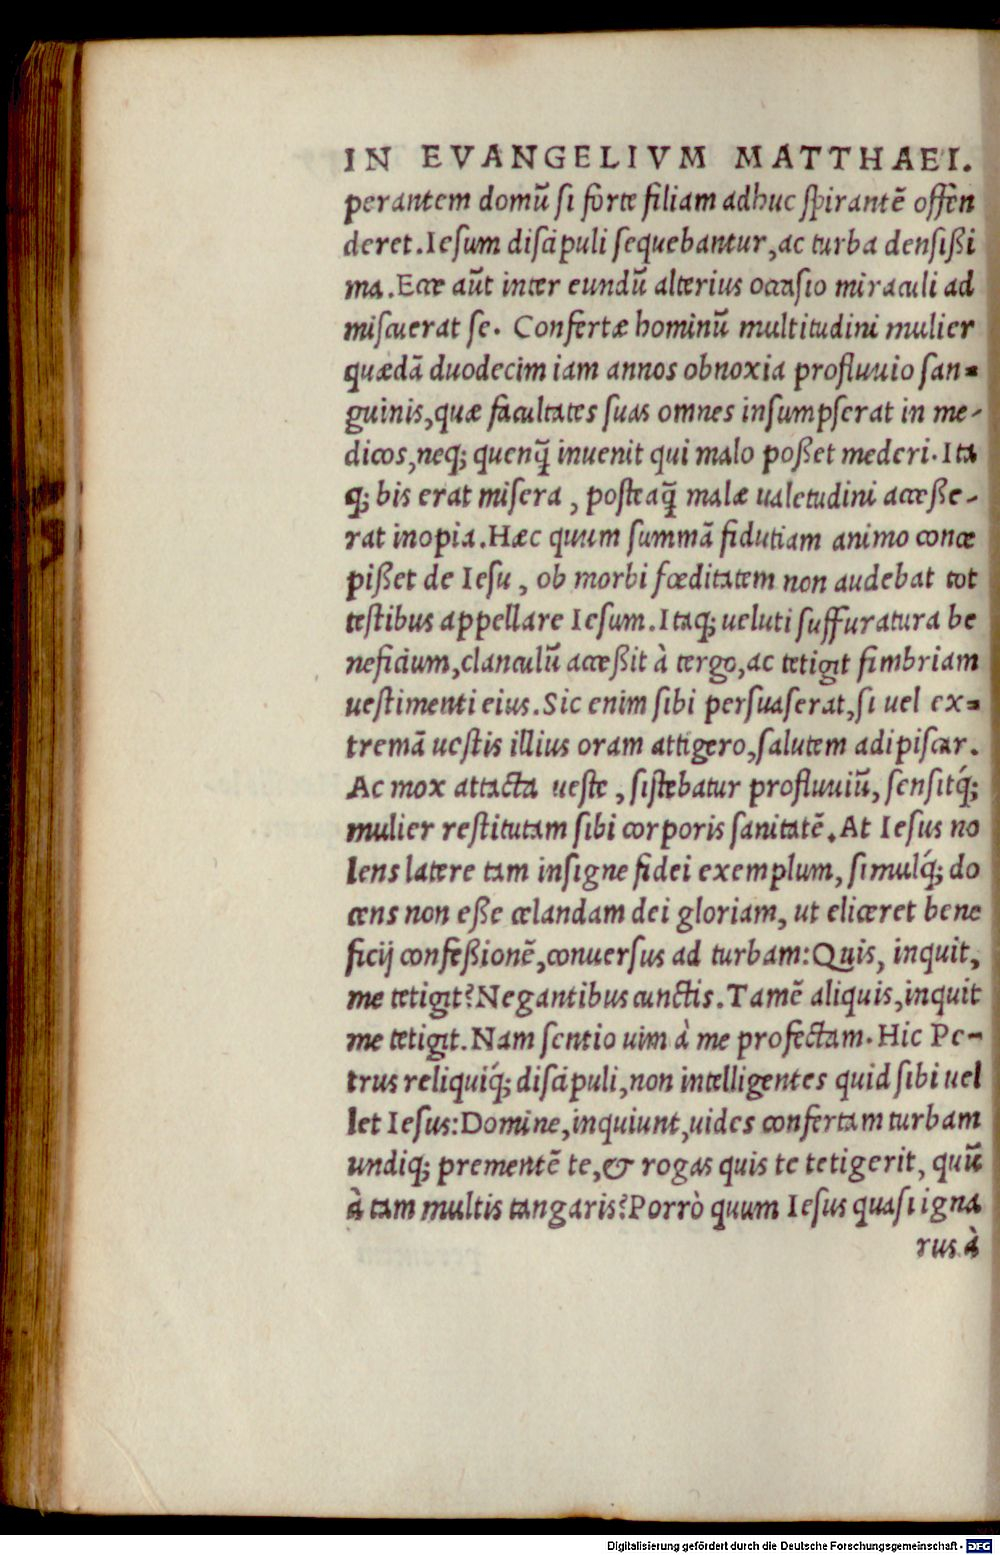 IN EVANGELIVM MATTHAEI.
perantem domũ si forte filiam adhuc spirantẽ offen
deret. Iesum discipuli sequebantur, ac turba densißi
ma. Ecce aũt inter eundũ alterius occasio miraculi ad
miscuerat se. Confertæ hominũ multitudini mulier
quædã duodecim iam annos obnoxia profluuio san-
guinis, quæ facultates suas omnes insumpserat in me-
dicos, neq; quenq̃ inuenit qui malo poßet mederi. Ita
q; bis erat misera, posteaq̃ malæ ualetudini acceße-
rat inopia. Hæc quum summã fidutiam animo conce
pißet de Iesu, ob morbi fœditatem non audebat tot
testibus appellare Iesum. Itaq; ueluti suffuratura be
neficium, clanculũ acceßit à tergo, ac tetigit fimbriam
uestimenti eius. Sic enim sibi persuaserat, si uel ex-
tremã uestis illius oram attigero, salutem adipiscar.
Ac mox attacta ueste, sistebatur profluuiũ, sensitq́;
mulier restitutam sibi corporis sanitatẽ. At Iesus no
lens latere tam insigne fidei exemplum, simulq́; do
cens non eße celandam dei gloriam, ut eliceret bene
ficij confeßionẽ, conuersus ad turbam: Quis, inquit,
me tetigit? Negantibus cunctis. Tamẽ aliquis, inquit
me tetigit. Nam sentio uim à me profectam. Hic Pe-
trus reliquiq́; discipuli, non intelligentes quid sibi uel
let Iesus: Domine, inquiunt, uides confertam turbam
undiq; prementẽ te, & rogas quis te tetigerit, quũ
à tam multis tangaris? Porrò quum Iesus quasi igna
rus à
Digitalisierung gefördert durch die Deutsche Forschungsgemeinschaft - DFG